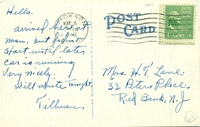 Hello.
arrived here at
noon, but didn't
start until later
Car is running
very nicely.
Will write tonight.
Tillman
POST
CARD
Mrs. H. T. Lane
33 Peters Place,
Red Bank, N.J.